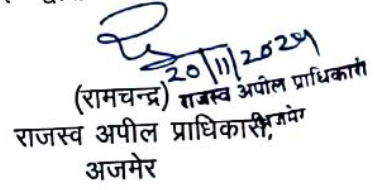 20/11/2024
(रामचन्द्र) राजस्व अपील प्राधिकारी
राजस्व अपील प्राधिकारी, अजमेर
अजमेर